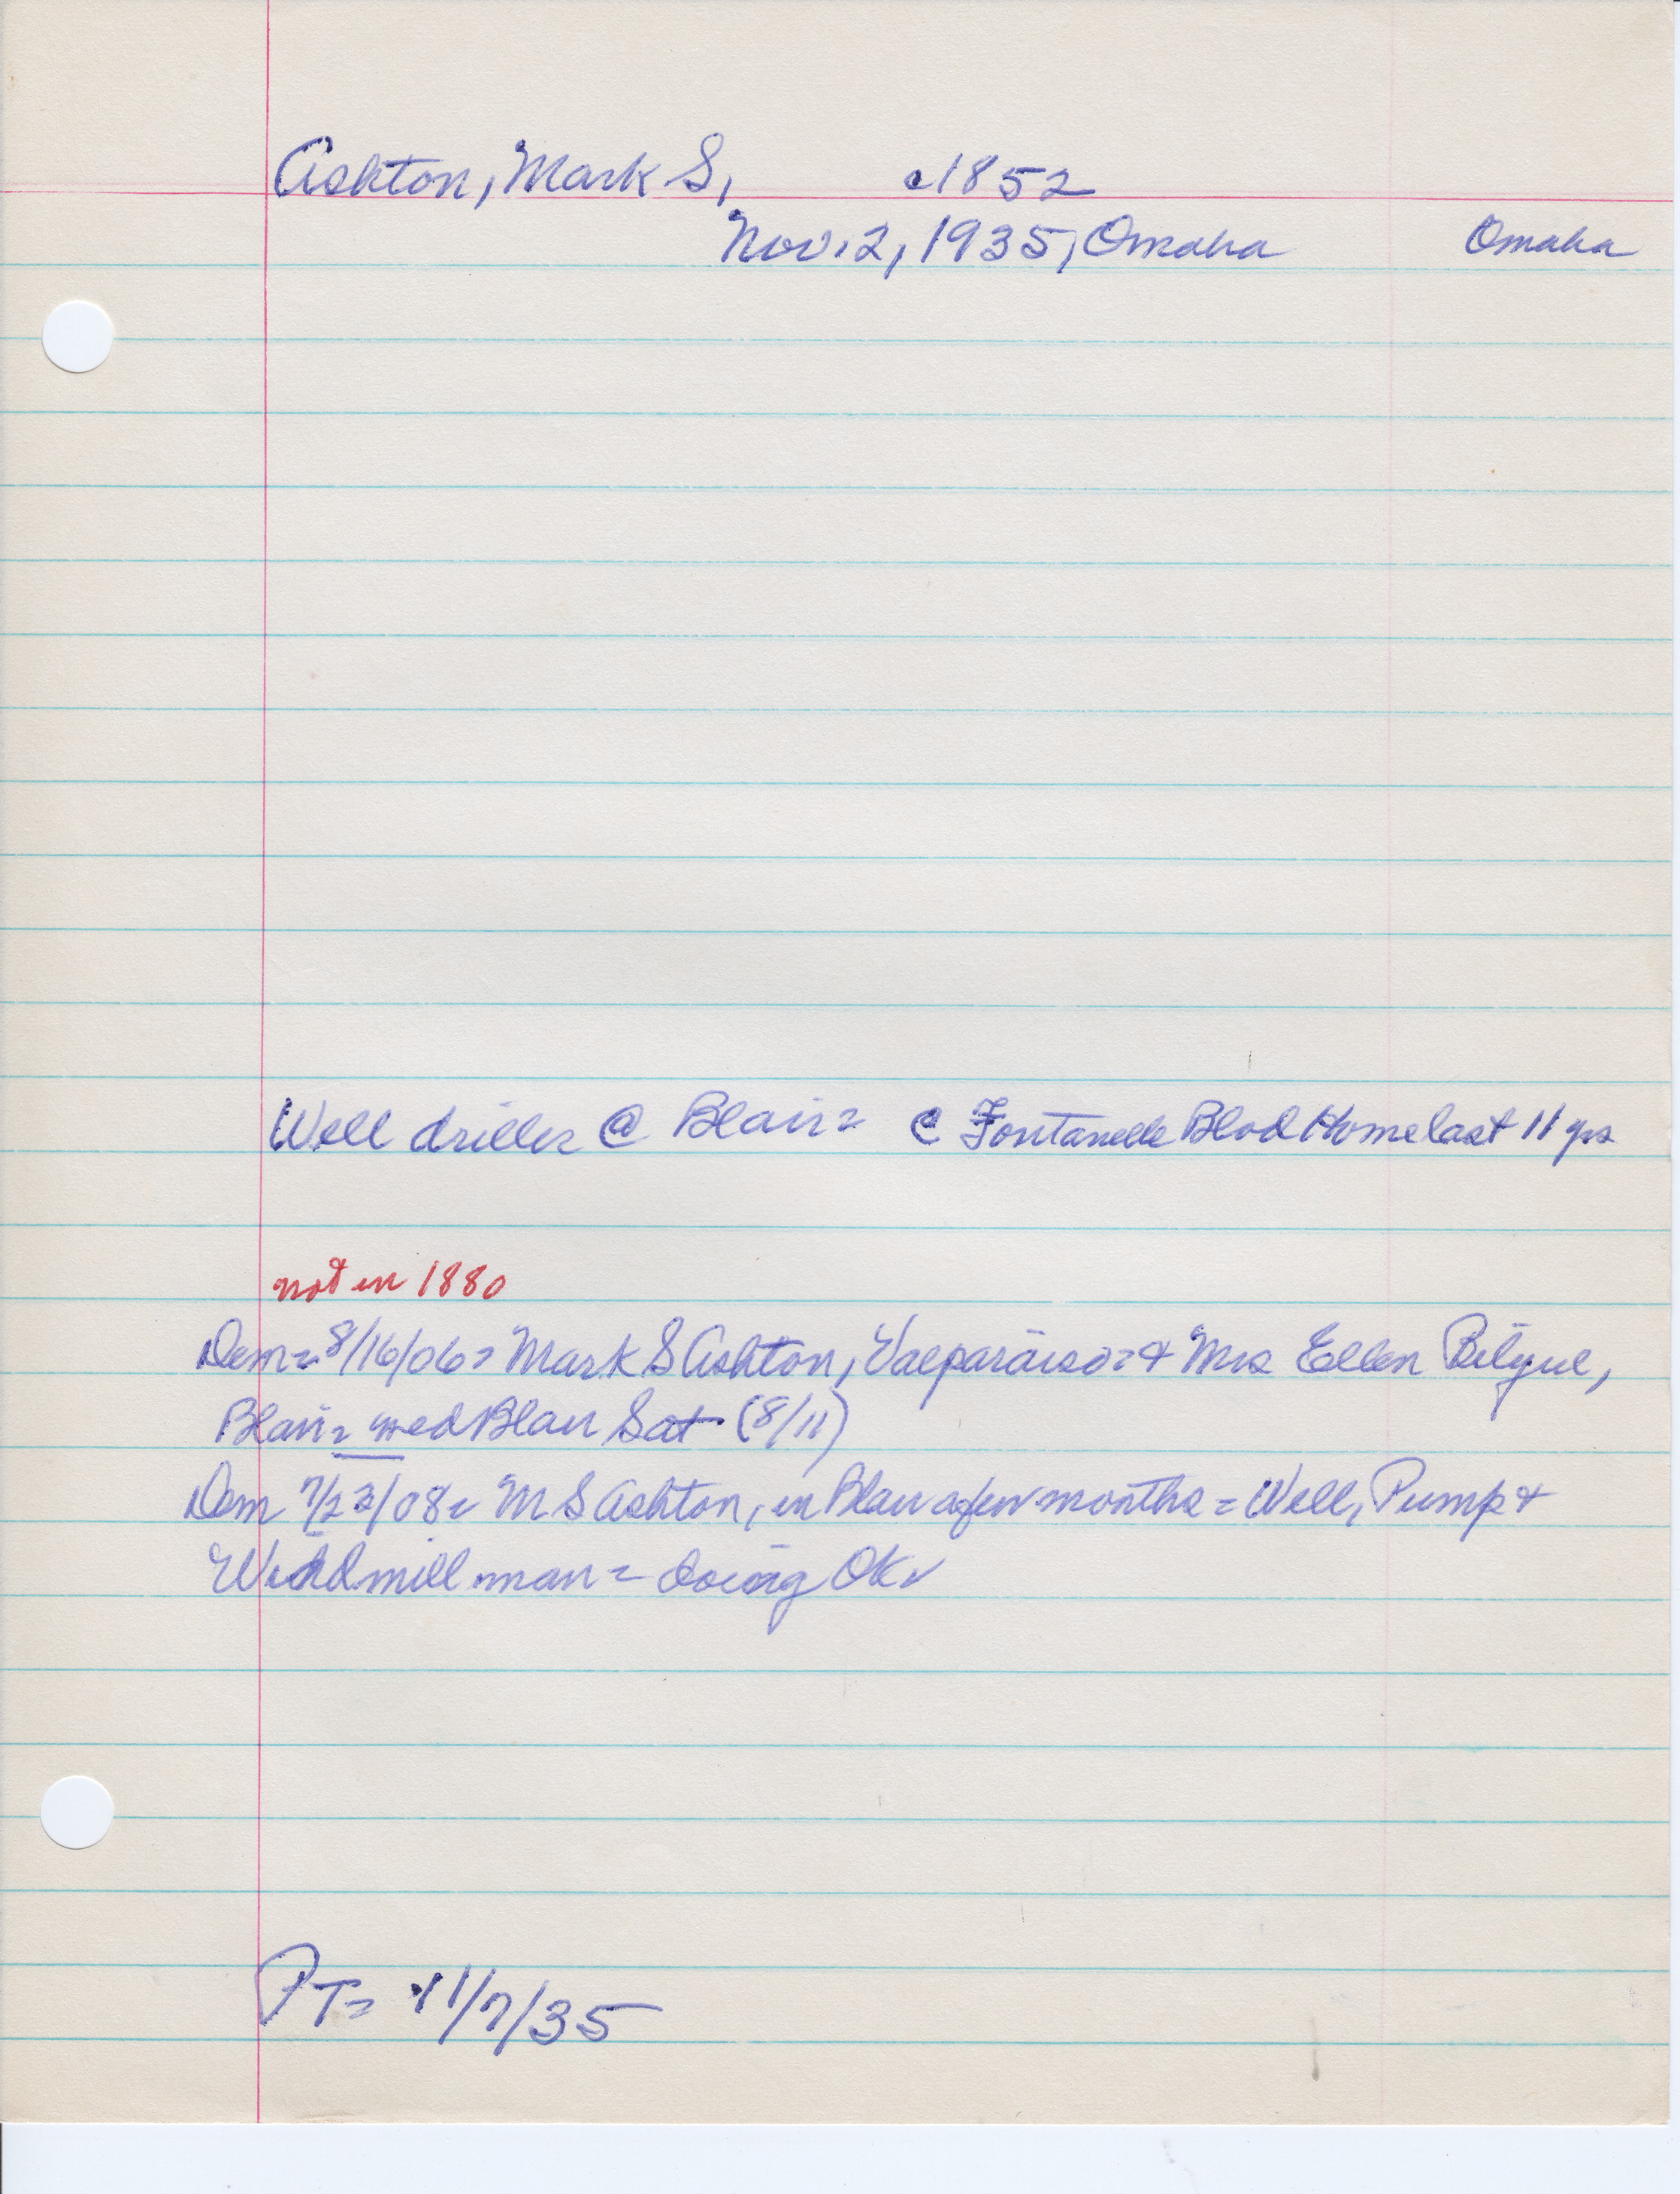 Ashton, Mark S, c1852
Nov. 2, 1935, Omaha Omaha
Well driller @ Blair = @ Fontanelle Blvd Home last 11 yrs
not in 1880
Dem = 8/16/06 = Mark S Ashton, Valparaiso = & Mrs Ellen Bilyue,
Blair = wed Blair Sat (8/11)
Dem 7/23/08 = M S Ashton, in Blair a few months = Well, Pump &
Windmill man = doing OK
PT = 11/7/35